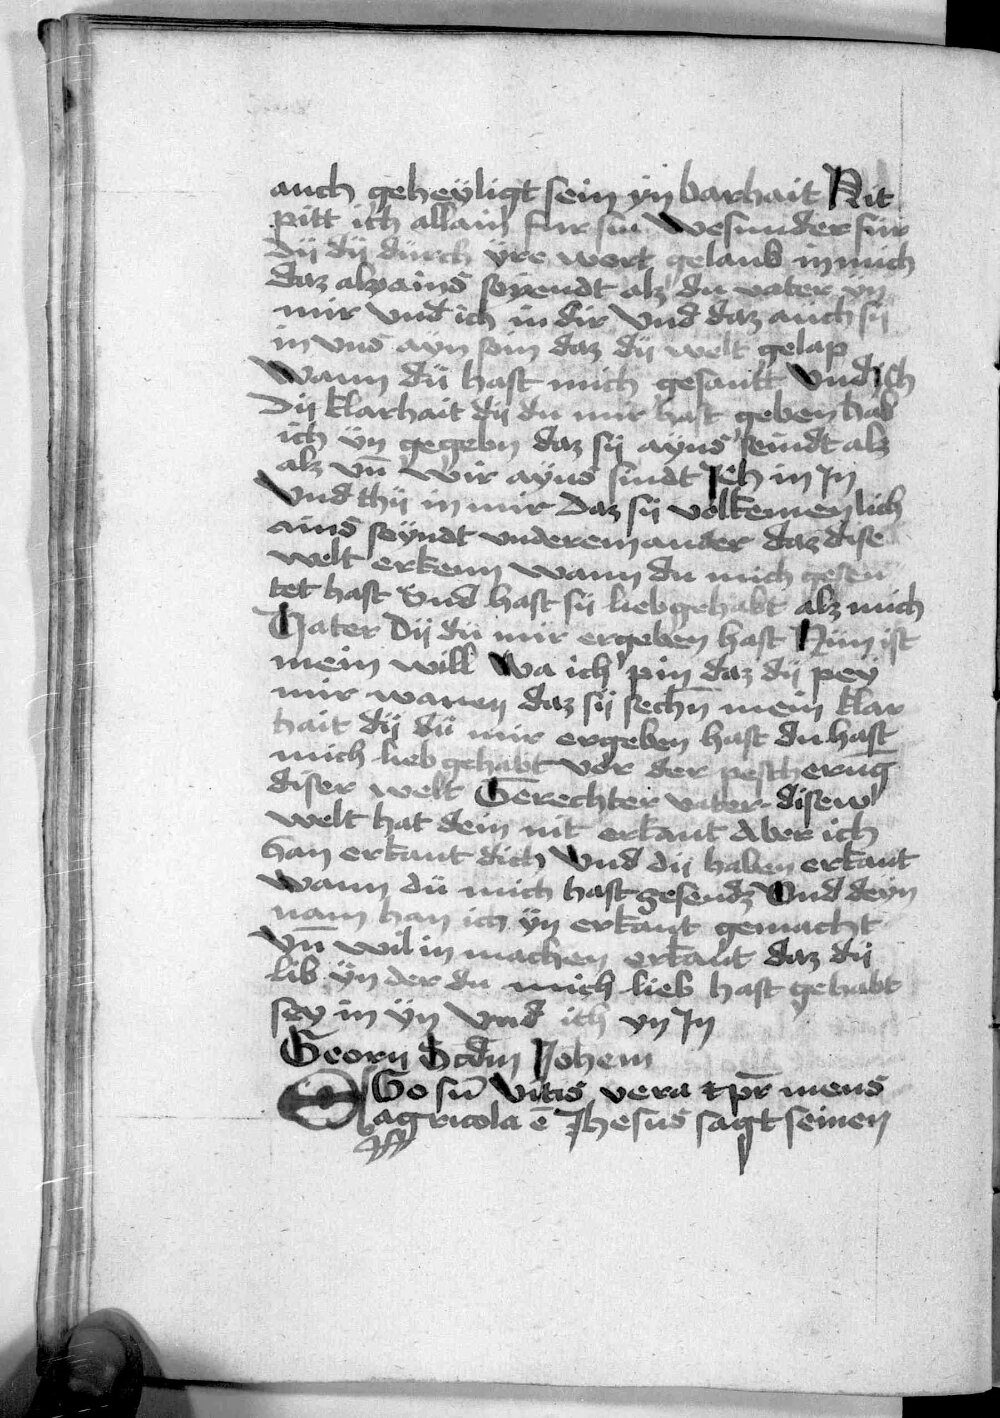 auch geheÿligt sein ÿn barhait Nit
pitt ich allain fur sin Wesunder für
Dÿ dÿ dürch ÿre wort gelaub in mich
daz alz ains seyendt alz du vater yn
mir Vnd ich in dir Vnd daz auch sÿ
in vns ayn sein daz dÿ welt gelap
Wann dü hast mich gesantt Vnd Ich
Dÿ klarhait dÿ du mir hast geben hab
ich ÿn gegebn daz sÿ ayns seindt alz
alz vn̄ wir ayns sindt Ich in In
Vnd thÿ in mir Daz sÿ volkemenlich
ains seÿndt vnderemander daz dise
welt erkenn wann du mich gesen
tet hast Vnd hast sÿ liebgehabt alz mich
Vater Dÿ dü mir ergeben hast Nün ist
mein will Wa ich pin daz dÿ pey
mir waren daz sÿ sechn̄ mein klar
hait dÿ dü mir ergeben hast du hast
mich lieb gehabt vor der pescherūg
diser welt Gerechter vater disew
welt hat dein nit erkant Aber ich
han erkant dich Vnd dÿ haben erkant
wann dü mich hast gesendz Vnd deyn
nam han ich ÿn erkant gemacht
Vn̄ wil in machen erkant daz dÿ
lib ÿn der du mich lieb hast gehabt
sey in ÿn Vnd ich yn In
Georÿ Scdm̄ Johem
EGo sū Vitis vera et pr̄ meus
agricola ē Jhesus sagt seinen